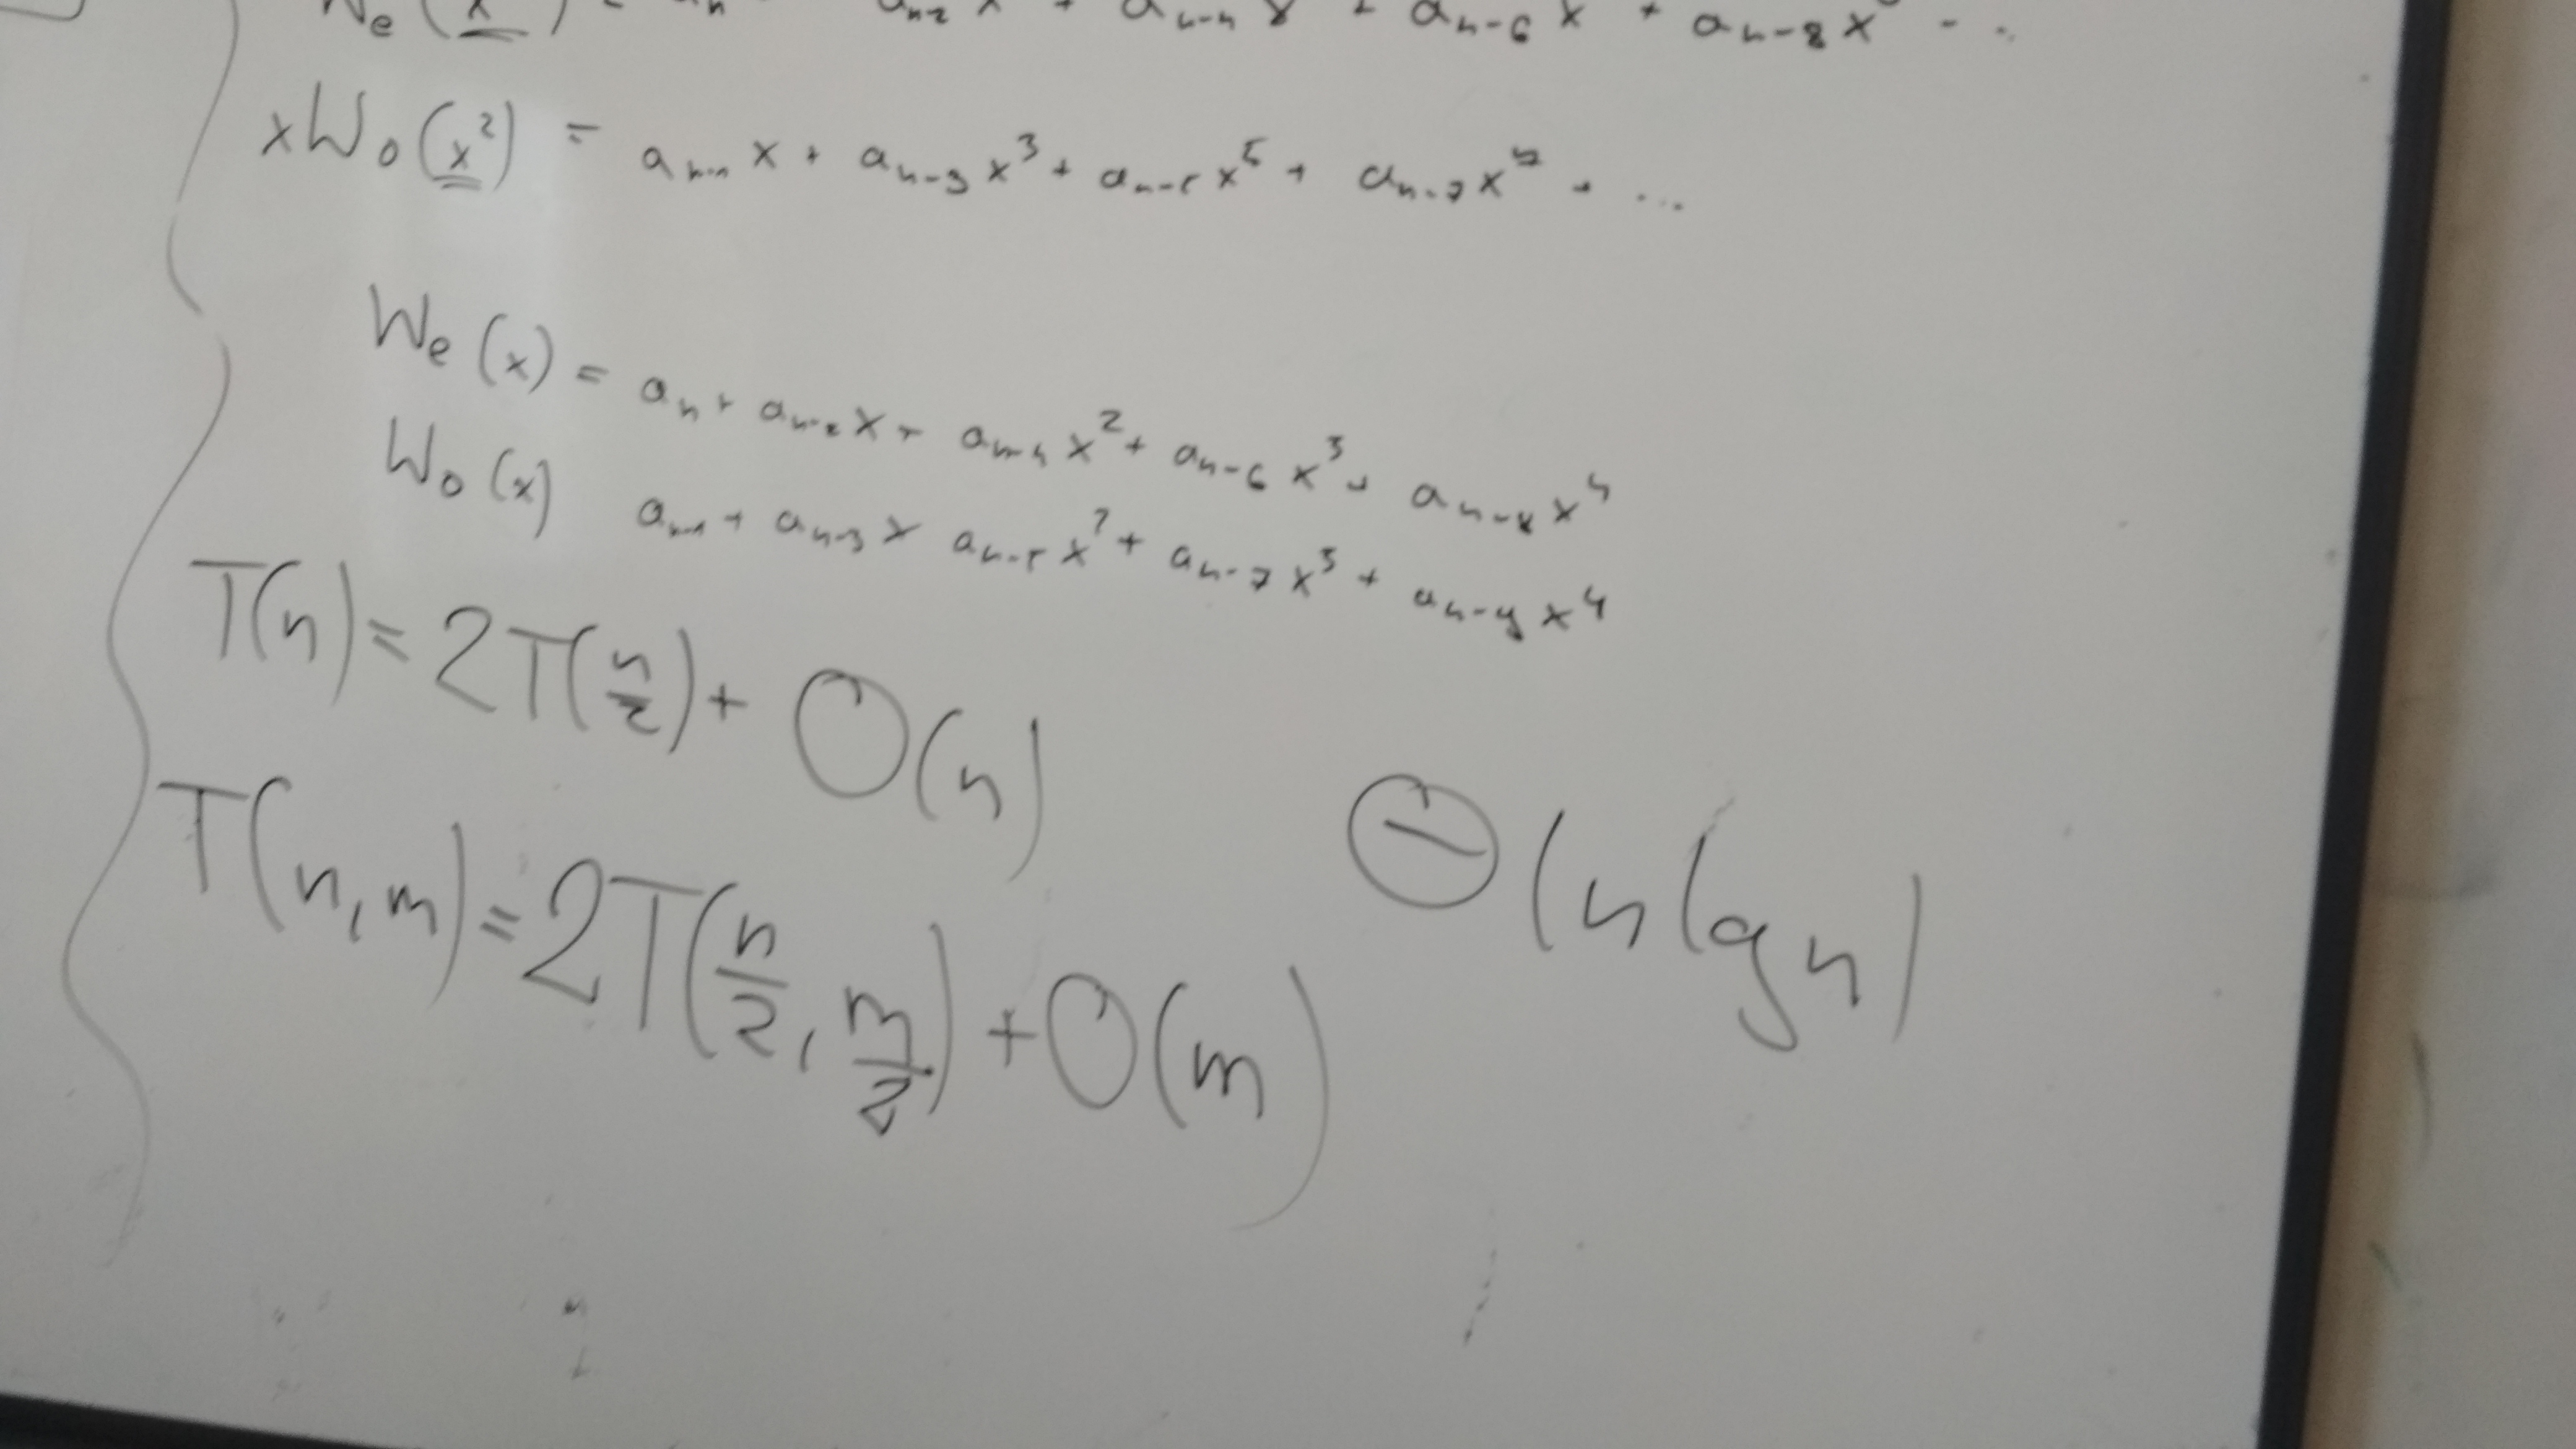 We(x) = an an-2 x + an-4 x + an-6 x + an-8 x - ..
xWo(x²) = an-1 x + an-3 x³ + an-5 x⁵ + an-7 x⁷ + ...
We(x) = an + an-2 x + an-4 x² + an-6 x³ + an-8 x⁴
Wo(x) an-1 + an-3 x an-5 x² + an-7 x³ + an-9 x⁴
T(n) = 2T(n/2) + O(n)
Θ(n lg n)
T(n, m) = 2T(n/2, m/2) + O(m)